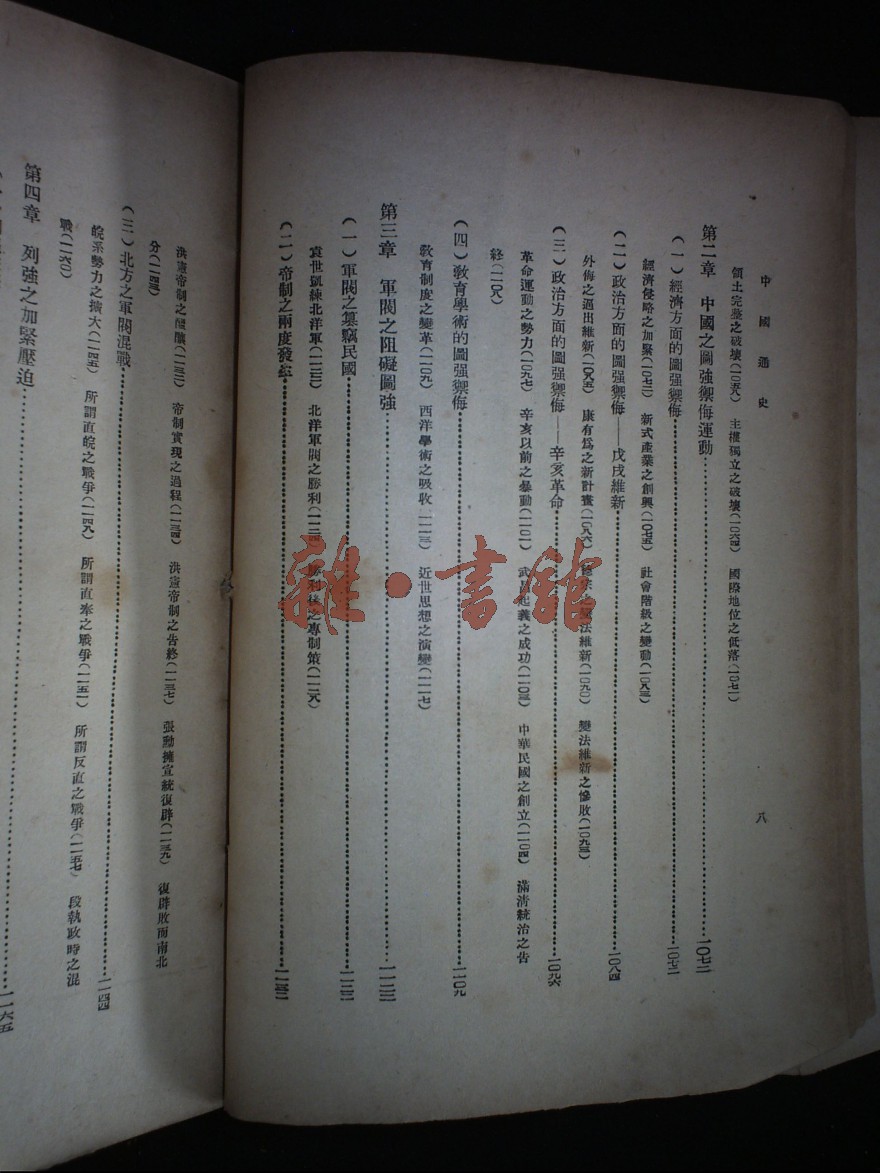 中國通史
八
領土完整之破壞(一〇五九) 主權獨立之破壞(一〇六四) 國際地位之低落(一〇七一)
第二章 中國之圖強禦侮運動 一〇七二
(一)經濟方面的圖强禦侮 一〇七二
經濟侵略之加緊(一〇七二) 新式產業之創興(一〇七五) 社會階級之變動(一〇八三)
(二)政治方面的圖强禦侮——戊戌維新 一〇八四
外侮之逼出維新(一〇八五) 康有爲之新計畫(一〇八六) 變法維新(一〇九〇) 變法維新之慘敗(一〇九三)
(三)政治方面的圖强禦侮——辛亥革命 一〇九六
革命運動之勢力(一〇九七) 辛亥以前之暴動(一一〇一) 武昌起義之成功(一一〇三) 中華民國之創立(一一〇四) 滿淸統治之吿
終(一一〇八)
(四)敎育學術的圖强禦侮 一一〇九
敎育制度之變革(一一〇九) 西洋學術之吸收(一一一三) 近世思想之演變(一一一七)
第三章 軍閥之阻礙圖強 一一二二
(一)軍閥之篡竊民國 一一二二
袁世凱練北洋軍(一一二二) 北洋軍閥之勝利(一一二四) 勝利後之專制策(一一二八)
(二)帝制之兩度發生 一一三二
洪憲帝制之醞釀(一一三二) 帝制實現之過程(一一三四) 洪憲帝制之吿終(一一三七) 張勳擁宣統復辟(一一三九) 復辟敗而南北
分(一一四三)
(三)北方之軍閥混戰 一一四四
皖系勢力之擴大(一一四五) 所謂直皖之戰爭(一一四九) 所謂直奉之戰爭(一一五一) 所謂反直之戰爭(一一五七) 段執政時之混
戰(一一六〇)
第四章 列強之加緊壓迫 一一六五
雜·書館